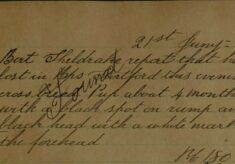 21st June
Bert Sheldrake report that he
lost in Bps Stortford this evening
cross breed Pup about 4 months
with a black spot on rump and
black head with a white mark
the forehead
Found